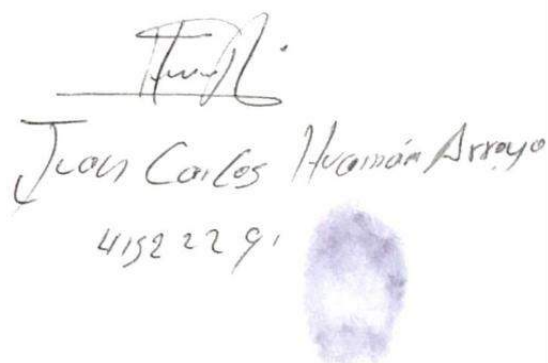 Juan Carlos Huamán Arroyo
41522291